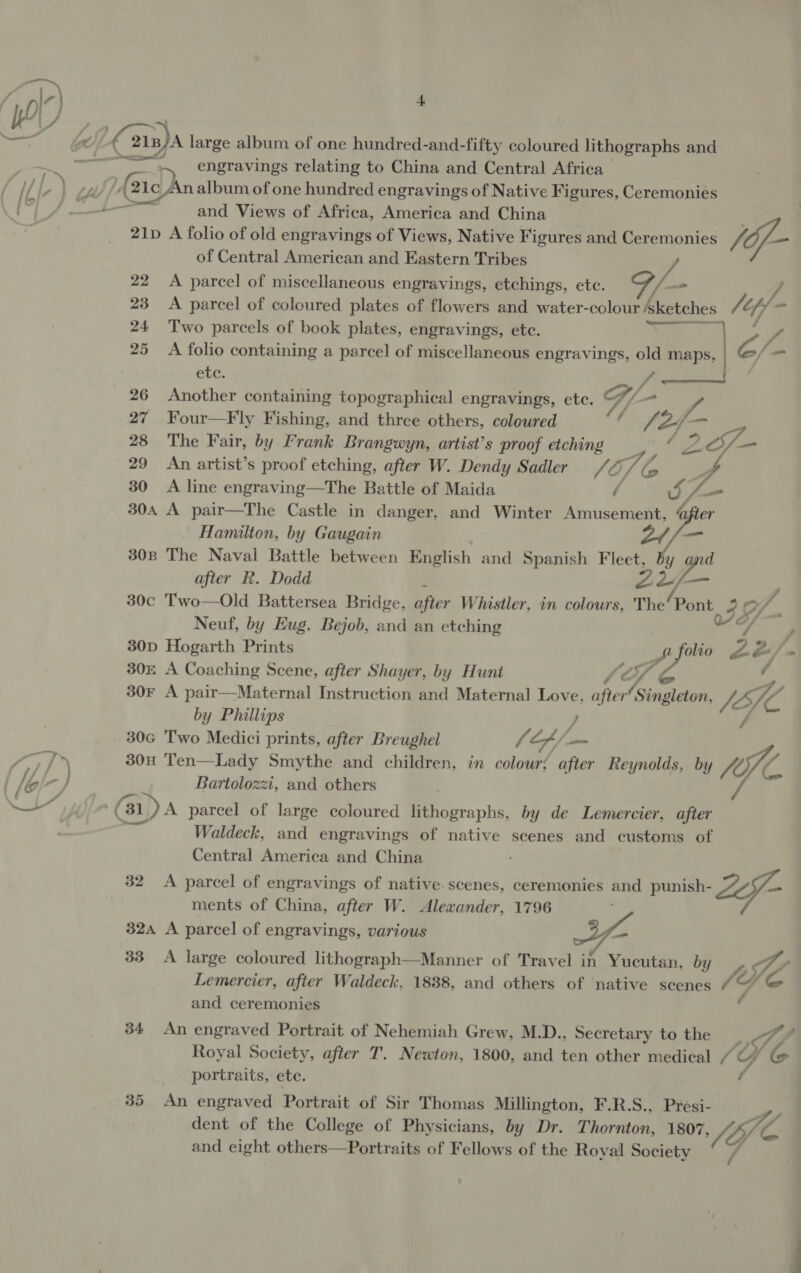 4
21B A large album of one hundred-and-fifty coloured lithographs and
engravings relating to China and Central Africa
21C An album of one hundred engravings of Native Figures, Ceremonies
and Views of Africa, America and China
21D A folio of old engravings of Views, Native Figures and Ceremonies 10/-
of Central American and Eastern Tribes
22 A parcel of miscellaneous engravings, etchings, etc.
23 A parcel of coloured plates of flowers and water-colour sketches 14/-
24 Two parcels of book plates, engravings, etc.
25 A folio containing a parcel of miscellaneous engravings, old maps, 6/-
etc.
26 Another containing topographical engravings, etc.
27 Four—Fly Fishing, and three others, coloured 12/-
28 The Fair, by Frank Brangwyn, artist's proof etching
29 An artist's proof etching, after W. Dendy Sadler
30 A line engraving—The Battle of Maida
30A A pair—The Castle in danger, and Winter Amusement, after
Hamilton, by Gaugain
30B The Naval Battle between English and Spanish Fleet, by and
after R. Dodd 22/-
30C Two—Old Battersea Bridge, after Whistler, in colours, The Pont
Neuf, by Eug. Bejob, and an etching
30D Hogarth Prints a folio 22/-
30E A Coaching Scene, after Shayer, by Hunt
30F A pair—Maternal Instruction and Maternal Love, after Singleton,
by Phillips
30G Two Medici prints, after Breughel 14/-
30H Ten—Lady Smythe and children, in colour, after Reynolds, by
Bartolozzi, and others
31 A parcel of large coloured lithographs, by de Lemercier, after
Waldeck, and engravings of native scenes and customs of
Central America and China
32 A parcel of engravings of native scenes, ceremonies and punish-
ments of China, after W. Alexander, 1796
32A A parcel of engravings, various
33 A large coloured lithograph—Manner of Travel in Yucutan, by
Lemercier, after Waldeck, 1838, and others of native scenes
and ceremonies
34 An engraved Portrait of Nehemiah Grew, M.D., Secretary to the
Royal Society, after T. Newton, 1800, and ten other medical
portraits, etc.
35 An engraved Portrait of Sir Thomas Millington, F.R.S., Presi-
dent of the College of Physicians, by Dr. Thornton, 1807,
and eight others—Portraits of Fellows of the Royal Society